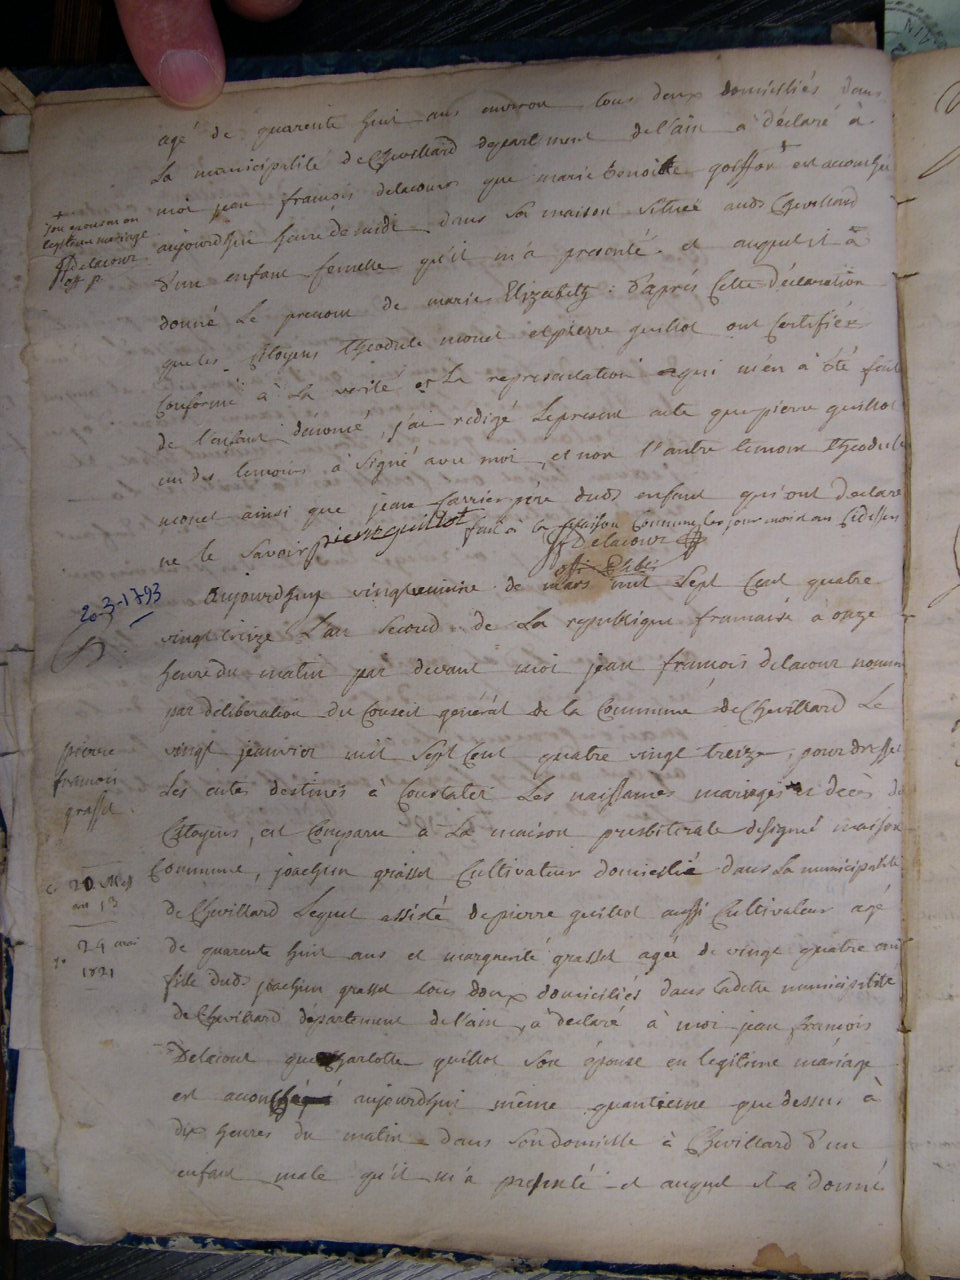 agé de quarente huit ans environ tous deux domiciliés dans
La municipalité de Chevillard departement de l'ain a déclaré à
moi jean françois delacour que marie benoitte goiffon + est accouchée
+ son epouse en
legitime mariage
Delacour
off. p.
aujourdhuy heure de midi dans sa maison située audt Chevillard
d'un enfant femelle qu'il m'a presenté et auquel il a
donné Le prenom de marie Elizabeth : d'après Cette déclaration
que les Citoyens theodule monet et pierre guillot ont Certifiée
Conforme à La verité et La representation qui m'en à été faite
de l'enfant dénomé, j'ai redigé Le present acte que pierre guillot
un des temoins à signé avec moi, et non l'autre temoin theodule
monet ainsi que jean père dudt enfant qui ont declaré
ne le savoir pierre guillot fait à la maison Commune les jour mois et an Cidessus
Delacour
off. Public
20-3-1793
Aujourdhuy vingtieme de mars mil Sept Cent quatre
vingt treize L'an Second de La republique francaise à onze
heure du matin par devant moi jean francois delacour nommé
par deliberation du Conseil général de la Commune de Chevillard Le
pierre
francois
grasset
vingt jeanvier mil Sept Cent quatre vingt treize, pour dresser
Les actes destinés à Constater Les naissances mariages et décès des
Citoyens, est Comparu à La maison presbiterale designé maison
Commune, joachim grasset Cultivateur domicilié dans La municipalité
20 Mess
an 13
de Chevillard Lequel assisté de pierre guillot aussi Cultivateur agé
24 mai
1821
de quarente huit ans et marguerite grasset agée de vingt quatre ans
fille dudt joachim grasset tous deux domiciliés dans ladite municipalité
de Chevillard département de l'ain, a déclaré à moi jean françois
Delacour que Charlotte guillot Son épouse en legitime mariage
est accouchée aujourdhuy même quantieme que dessus à
dix heures du matin dans Son domicille à Chevillard d'un
enfant male qu'il m'a presenté et auquel il a donné